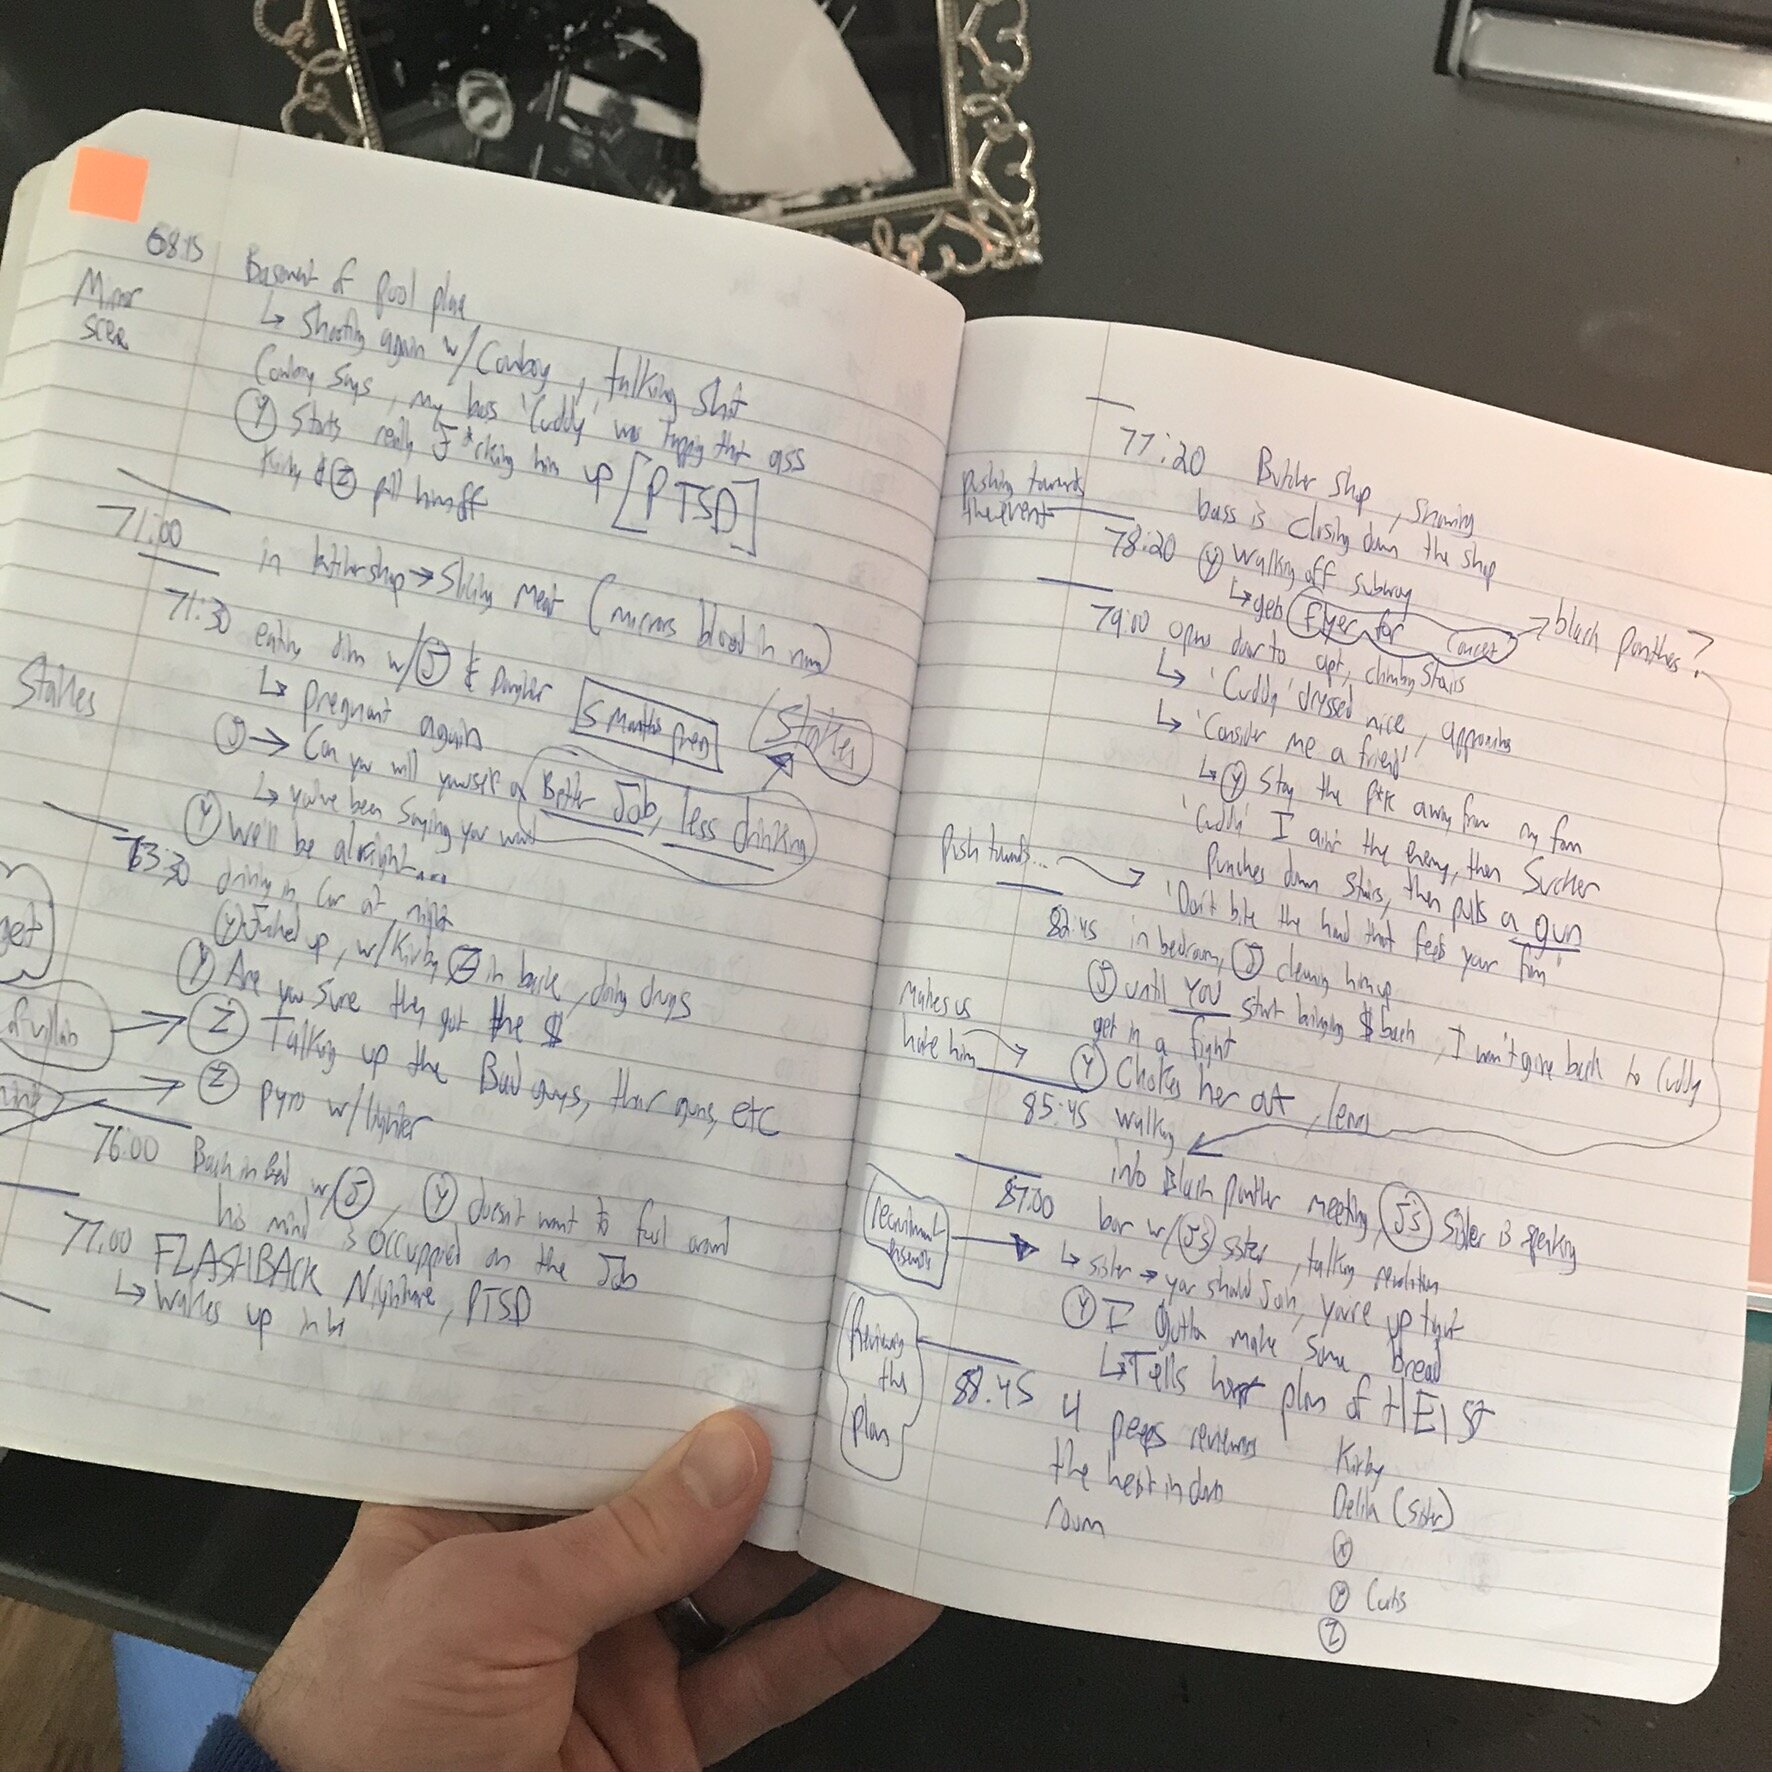 68:15 Basement of pool place
Minor scene
↳ Shooting again w/ Cowboy, talking shit
Cowboy says, my boss 'Cuddy' was tapping that ass
Ⓨ Starts really F*cking him up [PTSD]
Kirby & Ⓩ pull him off
71:00 in butchershop → Slicing meat (mirrors blood in )
71:30 eating din w/ Ⓙ & Daughter
↳ pregnant again 5 months preg (Stakes)
Stakes
Ⓙ → Can you will yourself a Better Job, less drinking
↳ you've been saying you want
Ⓨ We'll be alright...
73:30 driving in Car at night
Ⓨ up, w/ Kirby Ⓩ in back, doing drugs
get
Ⓨ Are you sure they got the $
of villain → Ⓩ Talking up the Bad guys, their guns, etc
Ⓩ pyro w/ lighter
76:00 Back in bed w/ Ⓙ, Ⓨ doesn't want to fool around
his mind is occuppied on the Job
77:00 FLASHBACK Nightmare, PTSD
↳ Wakes up in
77:20 Butcher Shop, showing
boss is closing down the shop
pushing towards the event
78:20 Ⓨ walking off subway
↳ gets Flyer for Concert → black panthers?
79:00 opens door to apt, climbing stairs
↳ 'Cuddy' dressed nice, approaches
↳ 'Consider me a friend'
↳ Ⓨ Stay the f*k away from my fam
'Cuddy' I ain't the enemy, then Sucker
Punches down stairs, then pulls a gun
Push towards... → 'Don't bite the hand that feeds your fam'
82:45 in bedroom, Ⓙ cleaning him up
Ⓙ until YOU start bringing $ back, I won't give back to Cuddy
get in a fight
makes us hate him → Ⓨ Chokes her out, leaves
85:45 walking
into Black panther meeting, Ⓙ's Sister is speaking
87:00 bar w/ Ⓙ's sister, talking revolution
recruitment →
↳ sister → you should Join, you're up tight
Ⓨ I Gotta make some bread
↳ Tells her plan of HEIST
Reviewing the plan
88:45 4 peeps reviewing
the heist in dark
room
Kirby
Delila (Sister)
ⓧ
Ⓨ Curtis
Ⓩ